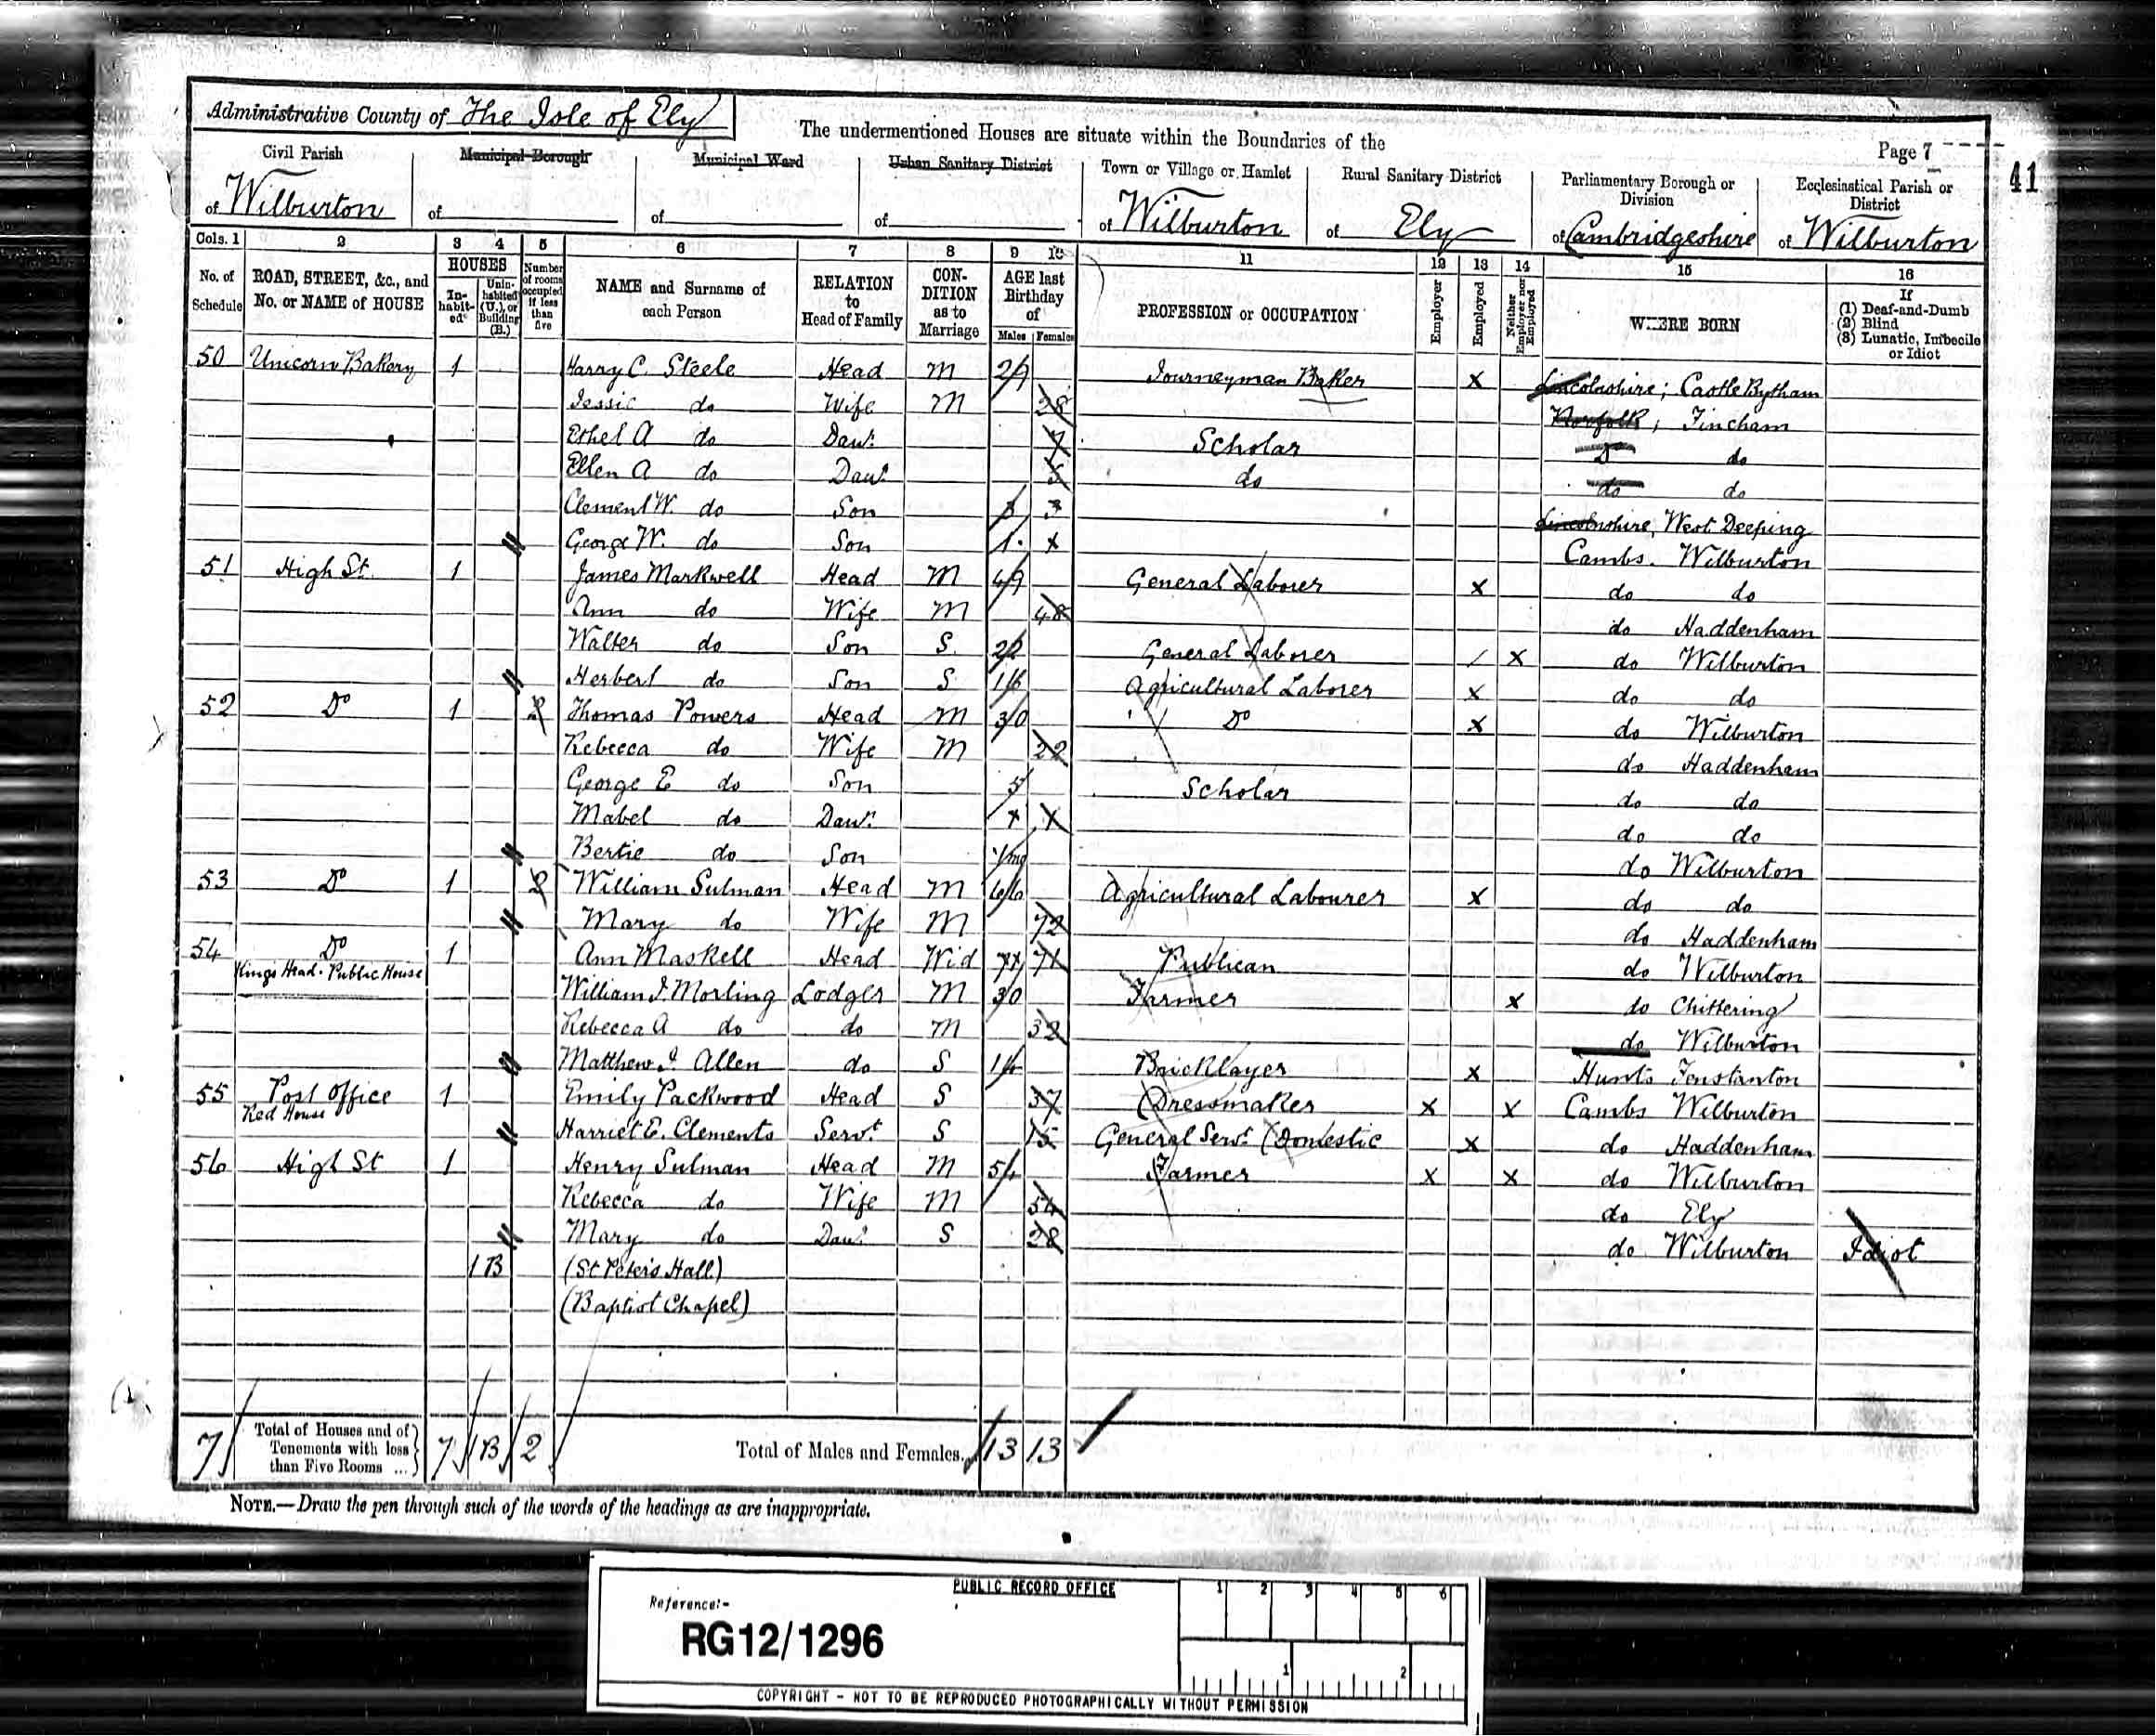 Administrative County of The Isle of Ely
The undermentioned Houses are situate within the Boundaries of the
Page 7
41
Civil Parish
of Wilburton
Municipal Borough
of
Municipal Ward
of
Urban Sanitary District
of
Town or Village or Hamlet
of Wilburton
Rural Sanitary District
of Ely
Parliamentary Borough or Division
of Cambridgeshire
Ecclesiastical Parish or District
of Wilburton
Cols. 1 2 3 4 5 6 7 8 9 10 11 12 13 14 15 16
No. of Schedule
ROAD, STREET, &c., and No. or NAME of HOUSE
HOUSES
In-habit-ed
Unin-habited (U.), or Building (B.)
Number of rooms occupied if less than five
NAME and Surname of each Person
RELATION to Head of Family
CON-DITION as to Marriage
AGE last Birthday of
Males Females
PROFESSION or OCCUPATION
Employer
Employed
Neither Employer nor Employed
WHERE BORN
If
(1) Deaf-and-Dumb
(2) Blind
(3) Lunatic, Imbecile or Idiot
50 Unicorn Bakery 1 Harry C. Steele Head M 29 Journeyman Baker X Lincolnshire; Castle Bytham
Jessie do Wife M 28 Norfolk; Fincham
Ethel A do Daur. 7 Scholar Do do
Ellen A do Daur. 5 do do do
Clement W. do Son 3 3 Lincolnshire, West Deeping
George W. do Son 1 x Cambs. Wilburton
51 High St. 1 James Markwell Head M 49 General Laborer X do do
Ann do Wife M 48 do Haddenham
Walter do Son S. 22 General Laborer / X do Wilburton
Herbert do Son S 16 Agricultural Laborer X do do
52 Do 1 2 Thomas Powers Head M 30 Do X do Wilburton
Rebecca do Wife M 22 do Haddenham
George E do Son 5 Scholar do do
Mabel do Daur. x X do do
Bertie do Son do Wilburton
53 Do 1 2 William Sulman Head M 66 Agricultural Labourer X do do
Mary do Wife M 72 do Haddenham
54 Do 1 Ann Maskell Head Wid 71 Publican do Wilburton
Kings Head. Public House William J. Morling Lodger M 30 Farmer X do Chittering
Rebecca A do do M 32 do Wilburton
Matthew J. Allen do S 14 Bricklayer X Hunts Fenstanton
55 Post Office 1 Emily Packwood Head S 37 Dressmaker X X Cambs Wilburton
Red House Harriet E. Clements Servt. S 15 General Servt (Domestic X do Haddenham
56 High St 1 Henry Sulman Head M 54 Farmer X X do Wilburton
Rebecca do Wife M 54 do Ely
Mary do Daur. S 28 do Wilburton Idiot
1B (St Peters Hall)
(Baptist Chapel)
7 Total of Houses and of Tenements with less than Five Rooms ... 7 1B 2 Total of Males and Females. 13 13
NOTE.—Draw the pen through such of the words of the headings as are inappropriate.
PUBLIC RECORD OFFICE
1 2 3 4 5 6
Reference:-
RG12/1296
1 2
COPYRIGHT - NOT TO BE REPRODUCED PHOTOGRAPHICALLY WITHOUT PERMISSION